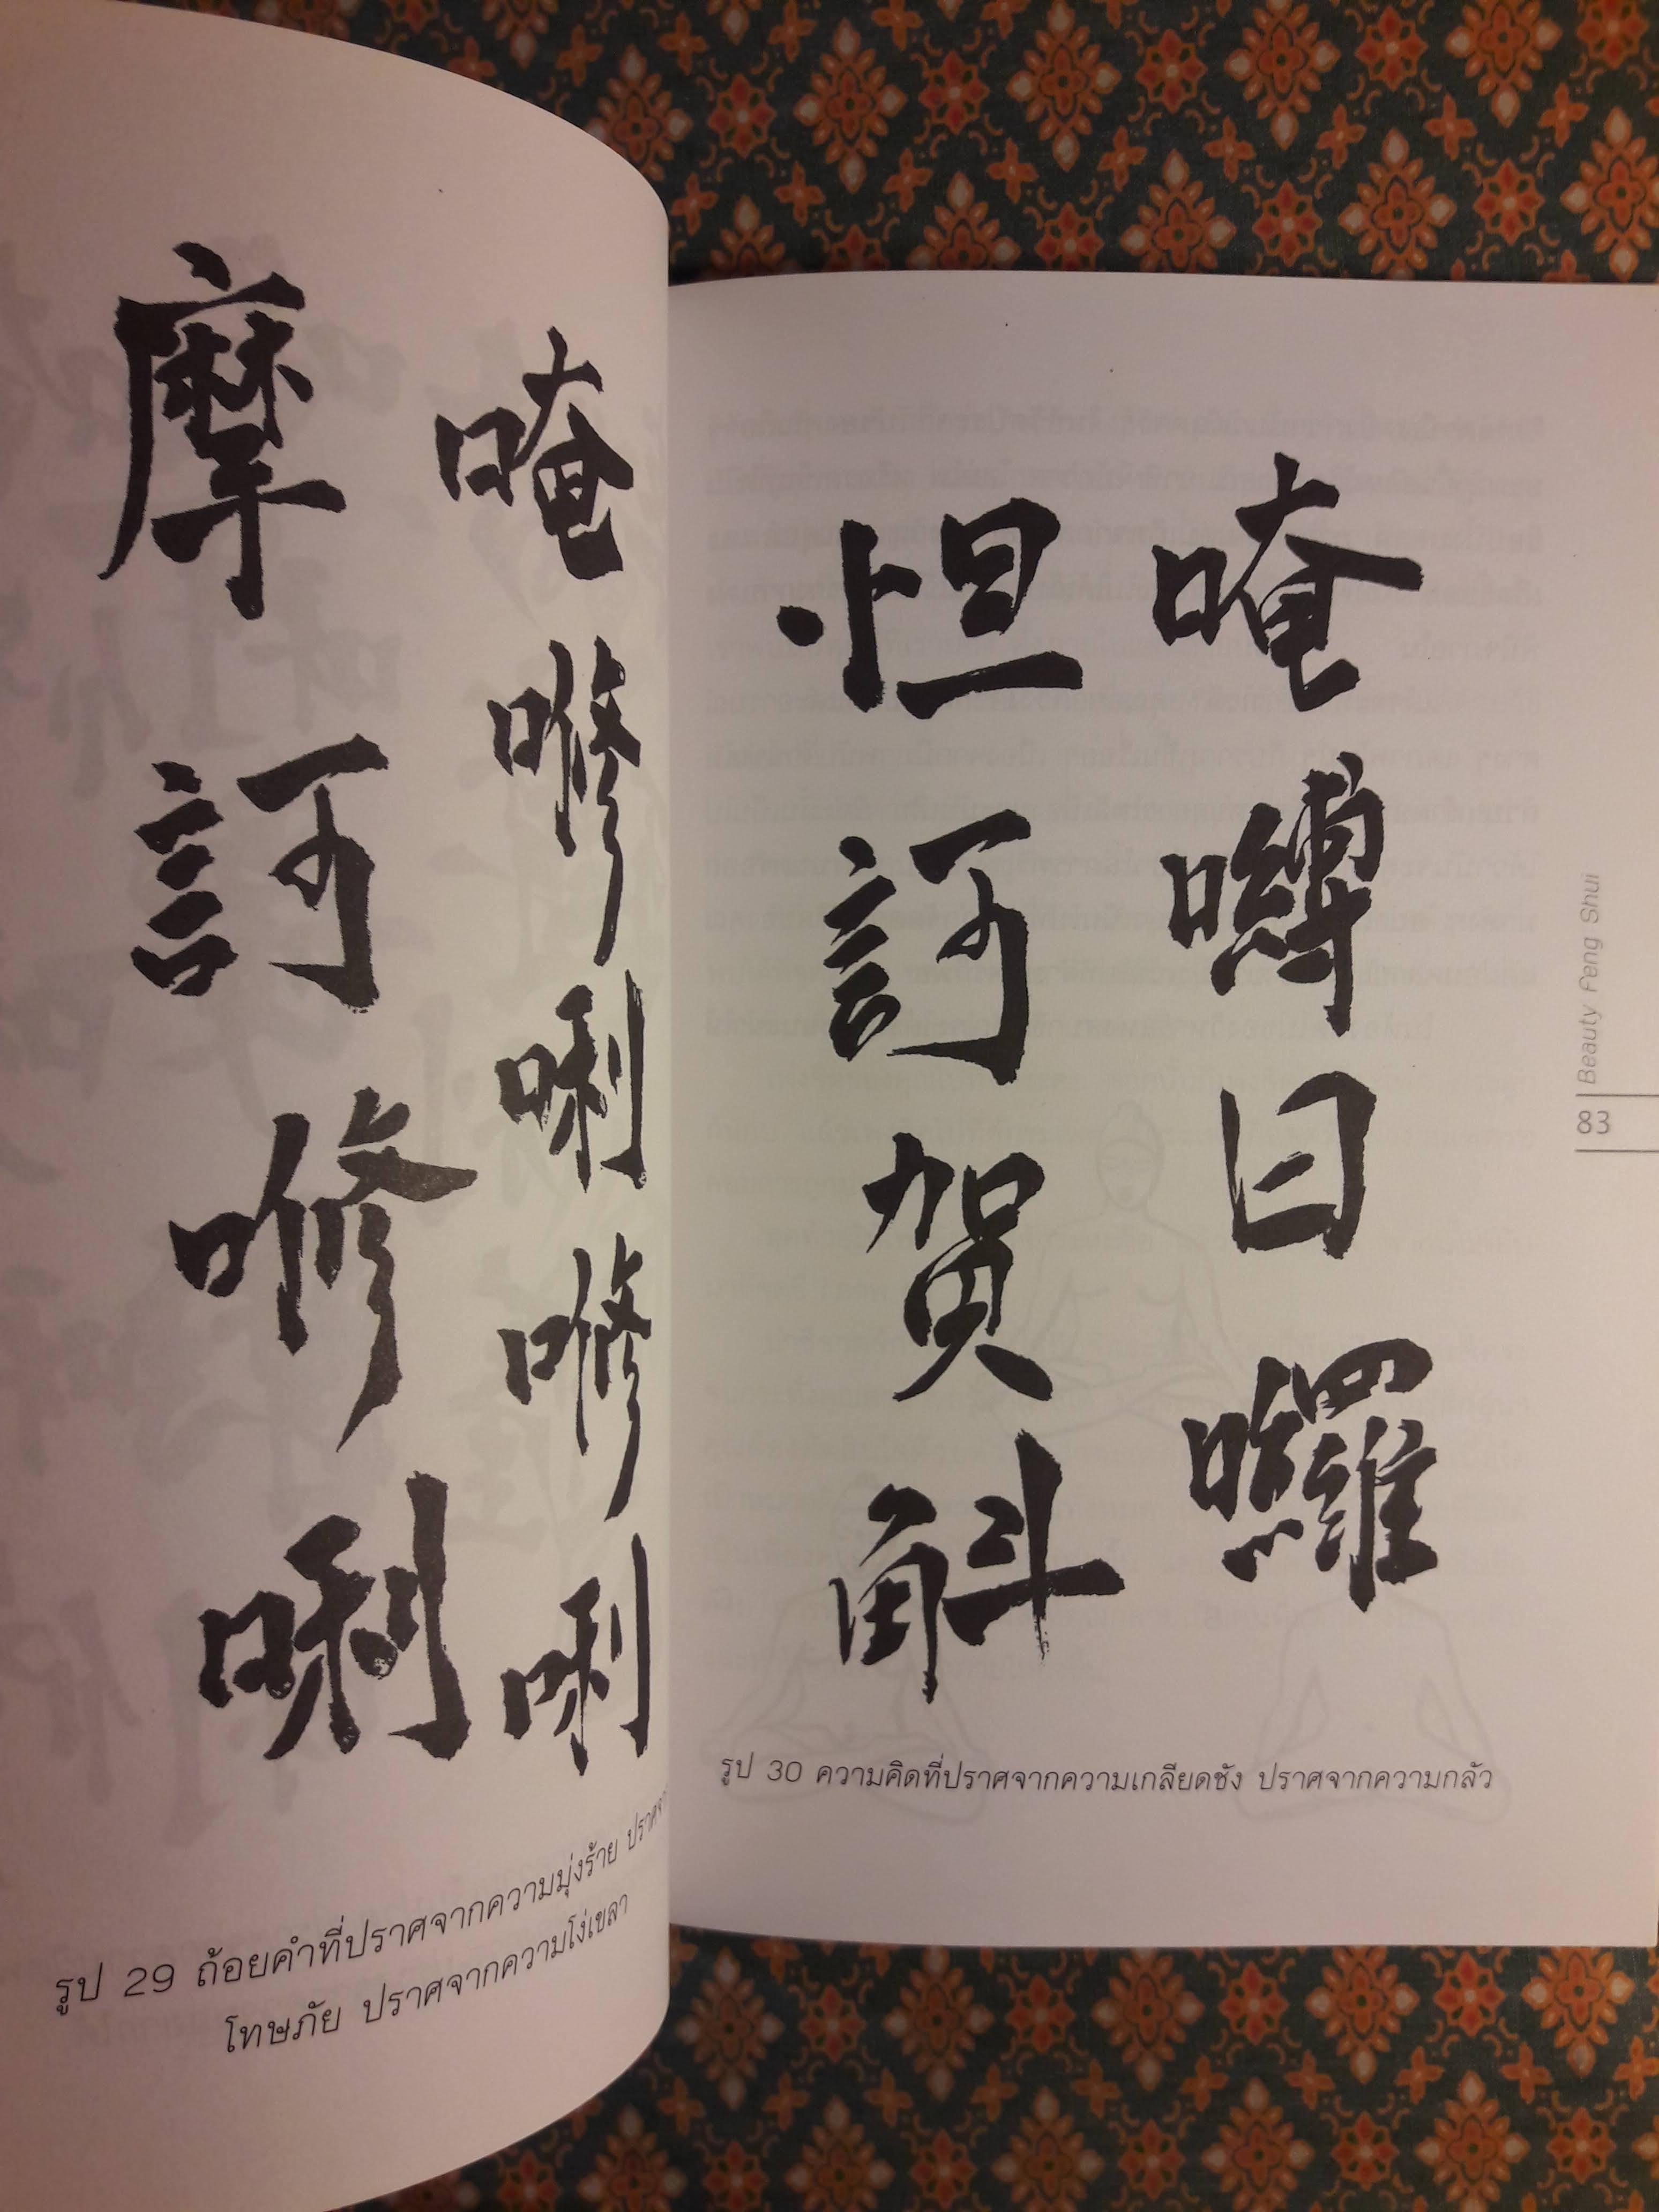 唵⿰口修唎⿰口修唎
摩訶⿰口修唎
รูป 29 ถ้อยคำที่ปราศจากความมุ่งร้าย
โทษภัย ปราศจากความโง่เขลา
唵嚩日囉
怛訶賀斛
รูป 30 ความคิดที่ปราศจากความเกลียดชัง ปราศจากความกลัว
Beauty Feng Shui
83